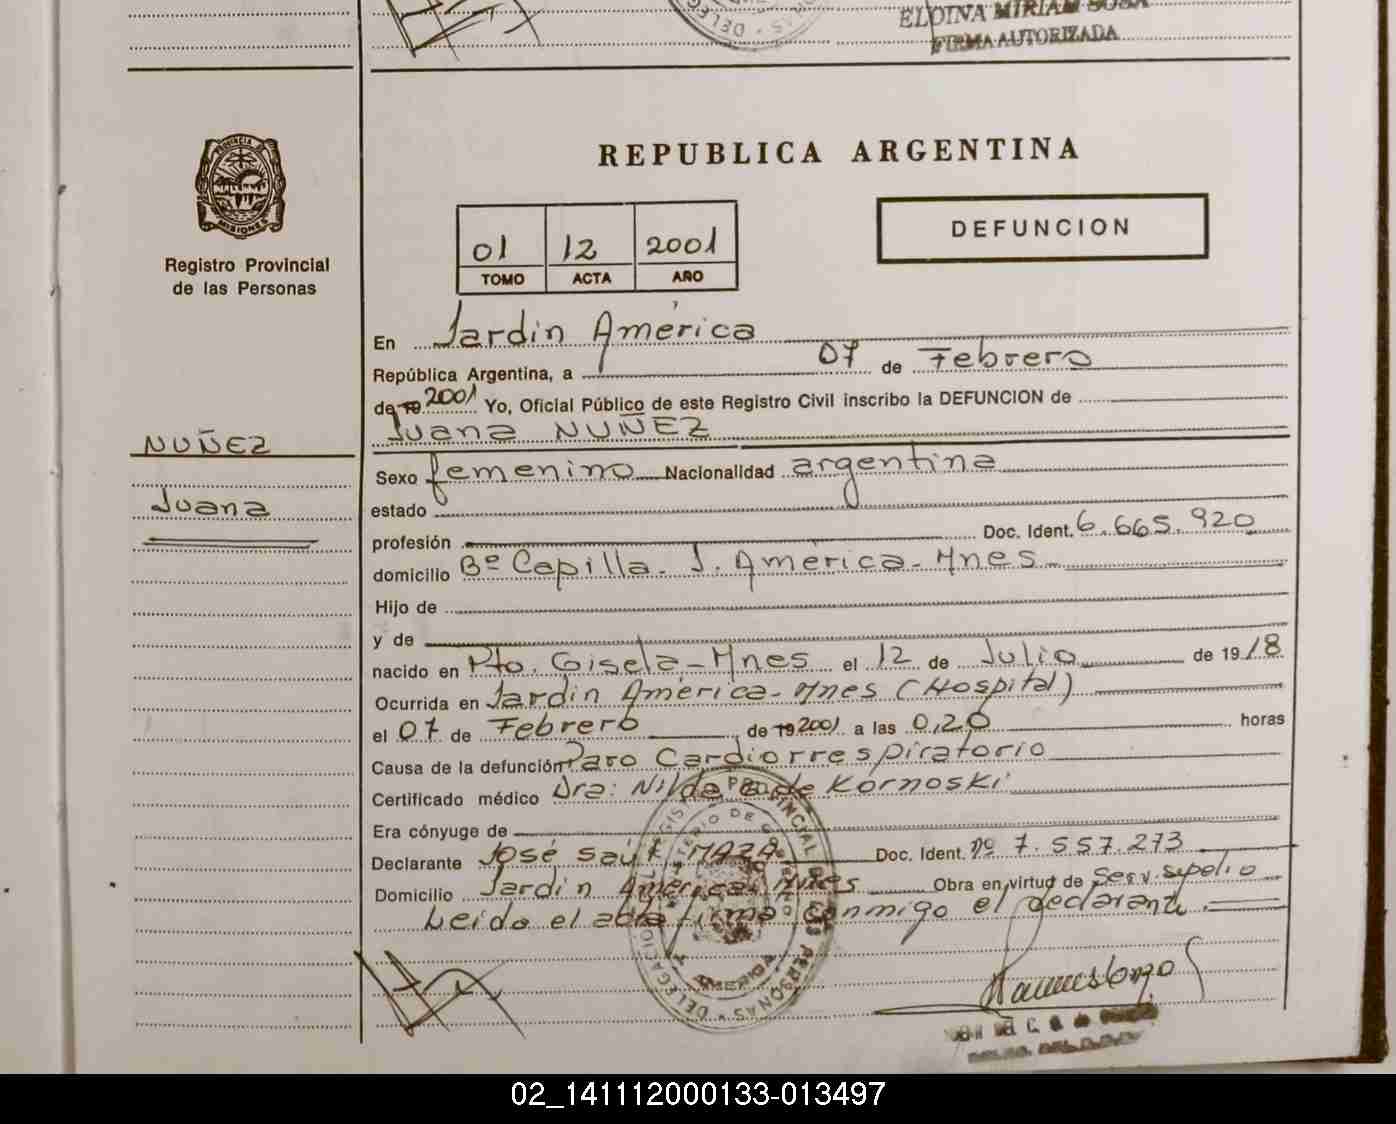 ELOINA MIRIAM SOSA
FIRMA AUTORIZADA
PROVINCIA DE
MISIONES
Registro Provincial
de las Personas
NUÑEZ
Juana
REPUBLICA ARGENTINA
01 12 2001
TOMO ACTA AÑO
DEFUNCION
En Jardín América
República Argentina, a 07 de Febrero
de 19 2001 Yo, Oficial Público de este Registro Civil inscribo la DEFUNCION de
Juana NUÑEZ
Sexo femenino Nacionalidad argentina
estado
profesión Doc. Ident. 6.665.920
domicilio Bº Capilla. J. América - Mnes
Hijo de
y de
nacido en Pto. Gisela - Mnes el 12 de Julio de 19 18
Ocurrida en Jardín América - Mnes (Hospital)
el 07 de Febrero de 19 2001 a las 0,20 horas
Causa de la defunción Paro Cardiorrespiratorio
Certificado médico Dra: Nilda de Kornoski
Era cónyuge de
Declarante José Saúl MAZA Doc. Ident. nº 7.557.273
Domicilio Jardín América Mnes Obra en virtud de Serv. sepelio
Leído el acta firma conmigo el declarante.
02_141112000133-013497